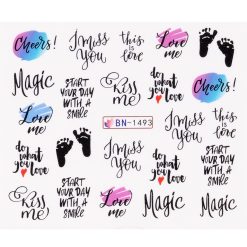 Cheers!
I
Miss
You
this
is
love
Love
me
Magic
START
YOUR DAY
WITH A
SMILE
Kiss
me
do
what
you
love
BN-1493
I
Miss
You
this
is
love
Love
me
do
what
you
love
I
Miss
You
Kiss
me
START
YOUR DAY
WITH A
SMILE
Love
me
do
what
you
love
Kiss
me
START
YOUR DAY
WITH A
SMILE
Magic
Magic